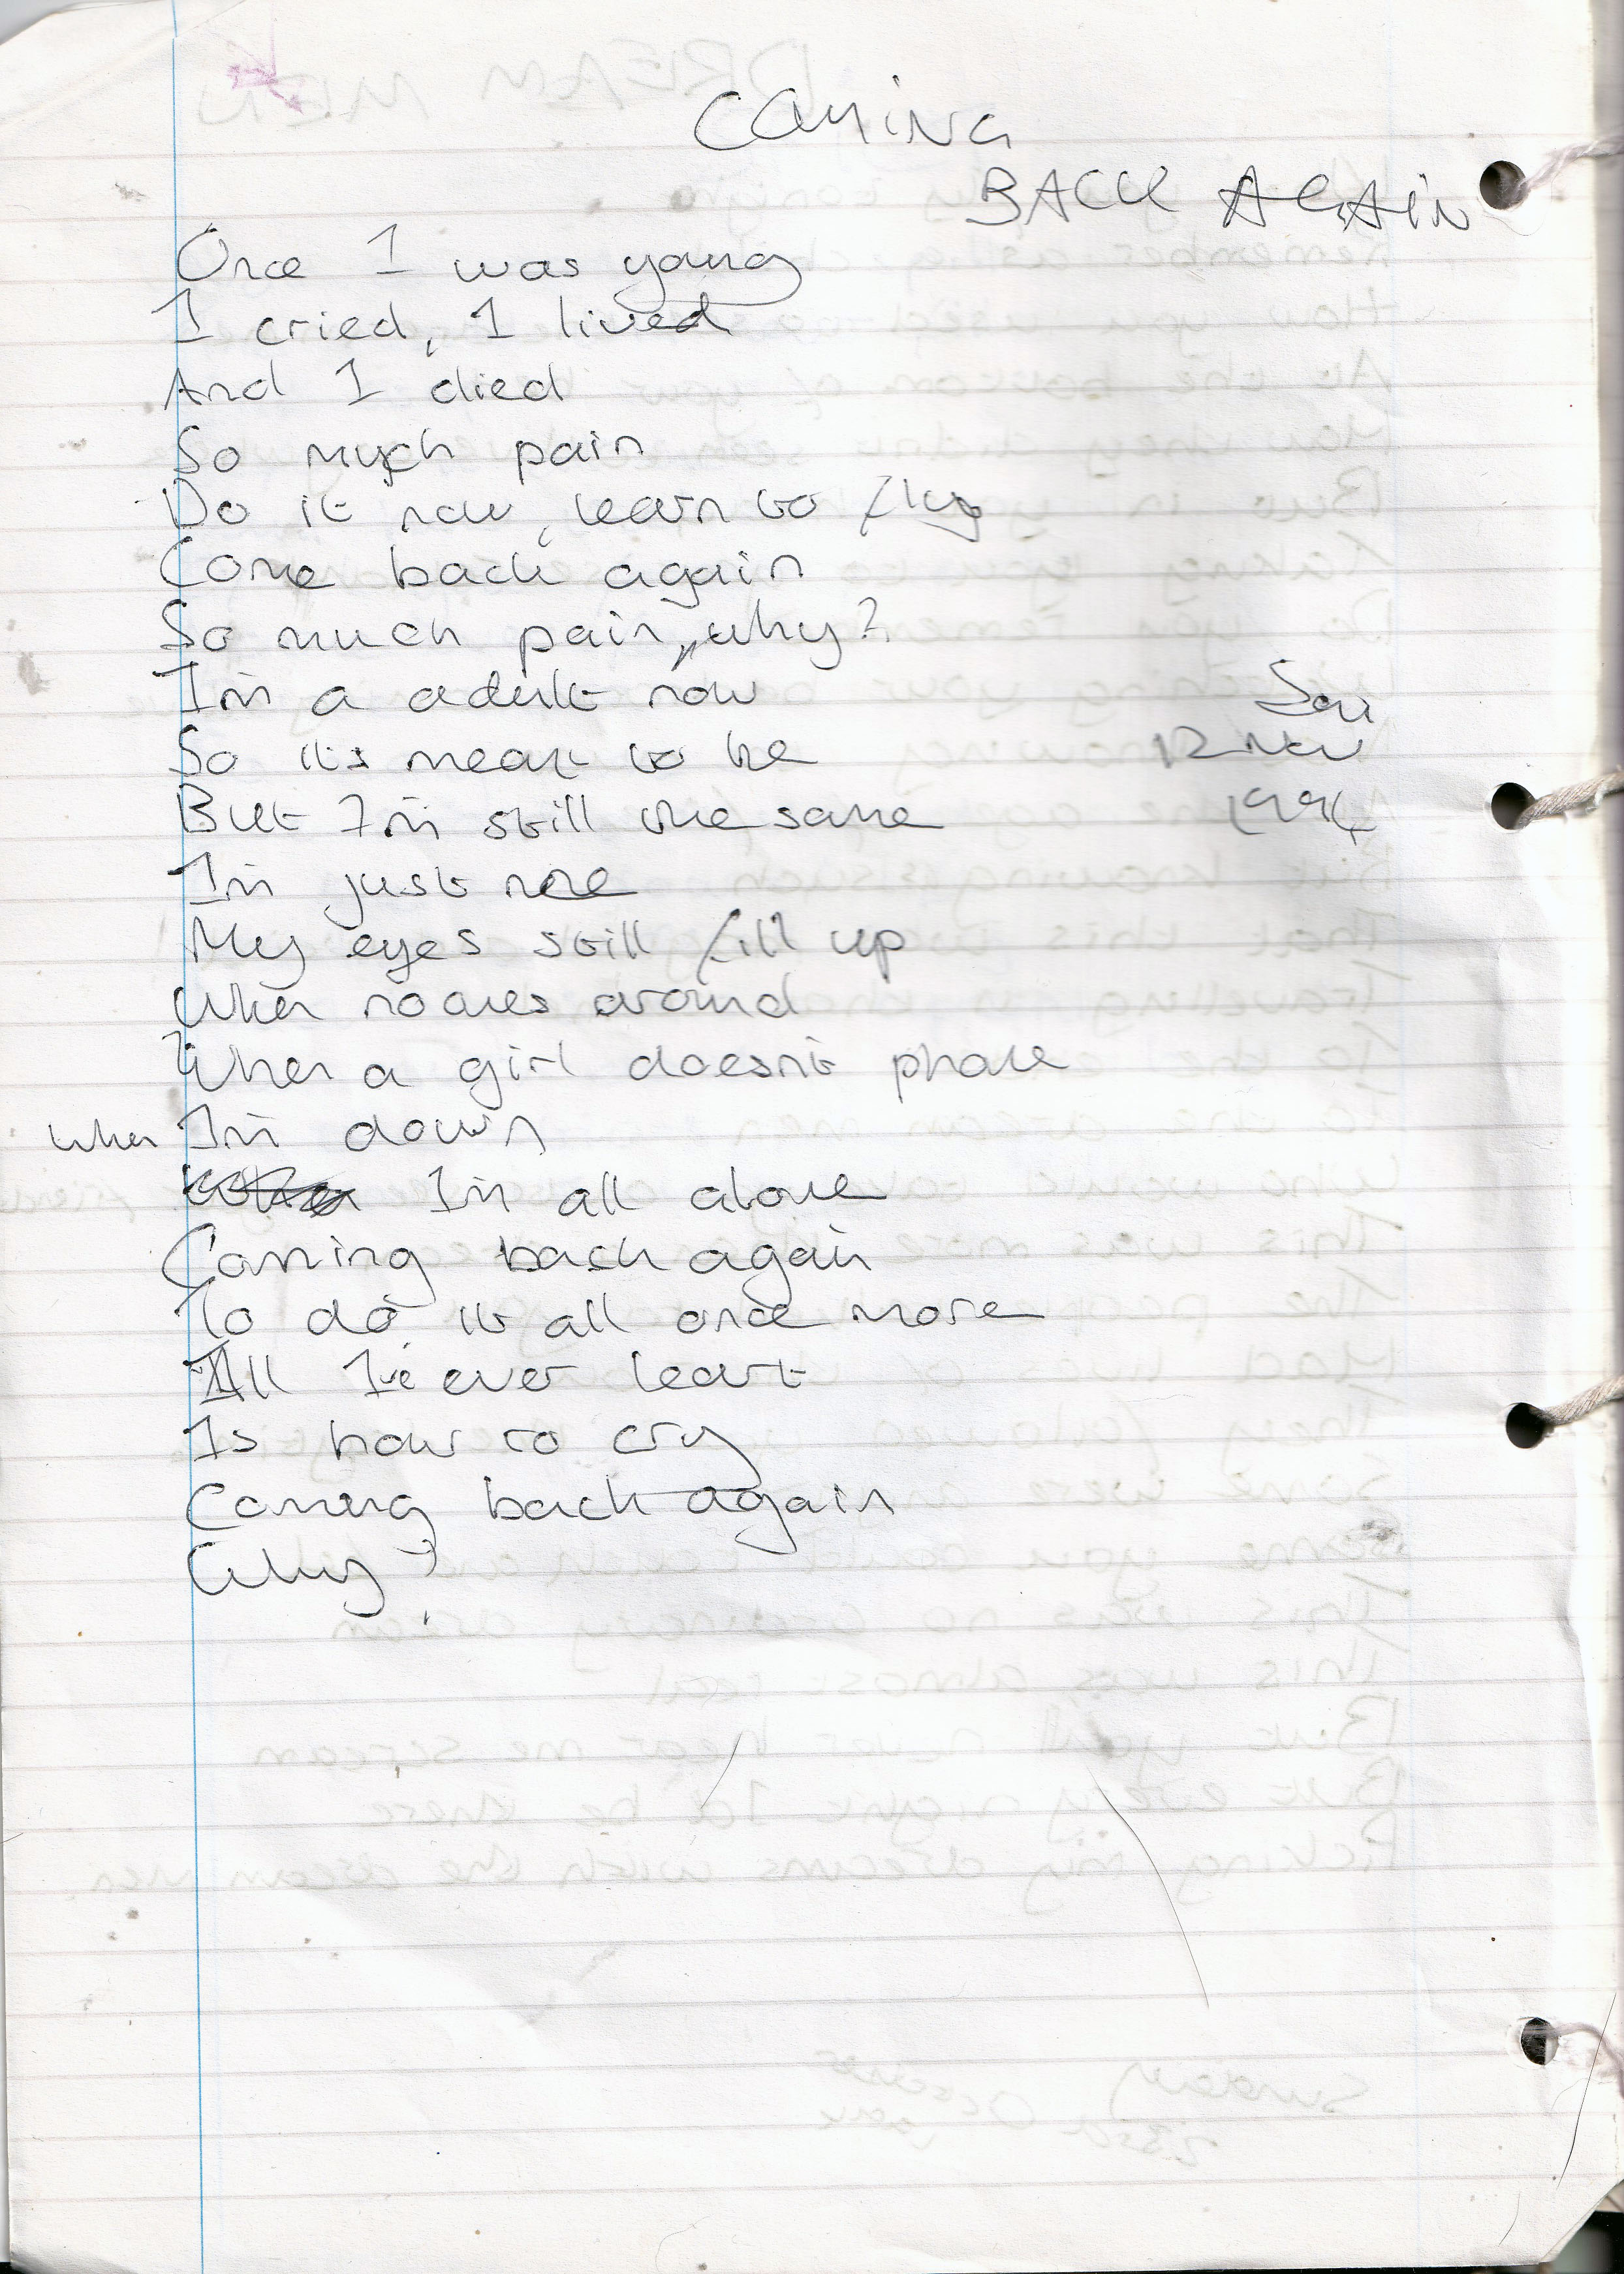 COMING
BACK AGAIN
Once I was young
I cried, I lived
And I died
So much pain
Do it now, learn to fly
Come back again
So much pain, why?
I'm a adult now
So it's meant to be
But I'm still the same
I'm just me
My eyes still fill up
When no ones around
When a girl doesn't phone
When I'm down
I'm all alone
Coming back again
To do it all once more
All I've ever leart
Is how to cry
Coming back again
Why?
Sat
12 Nov
1994